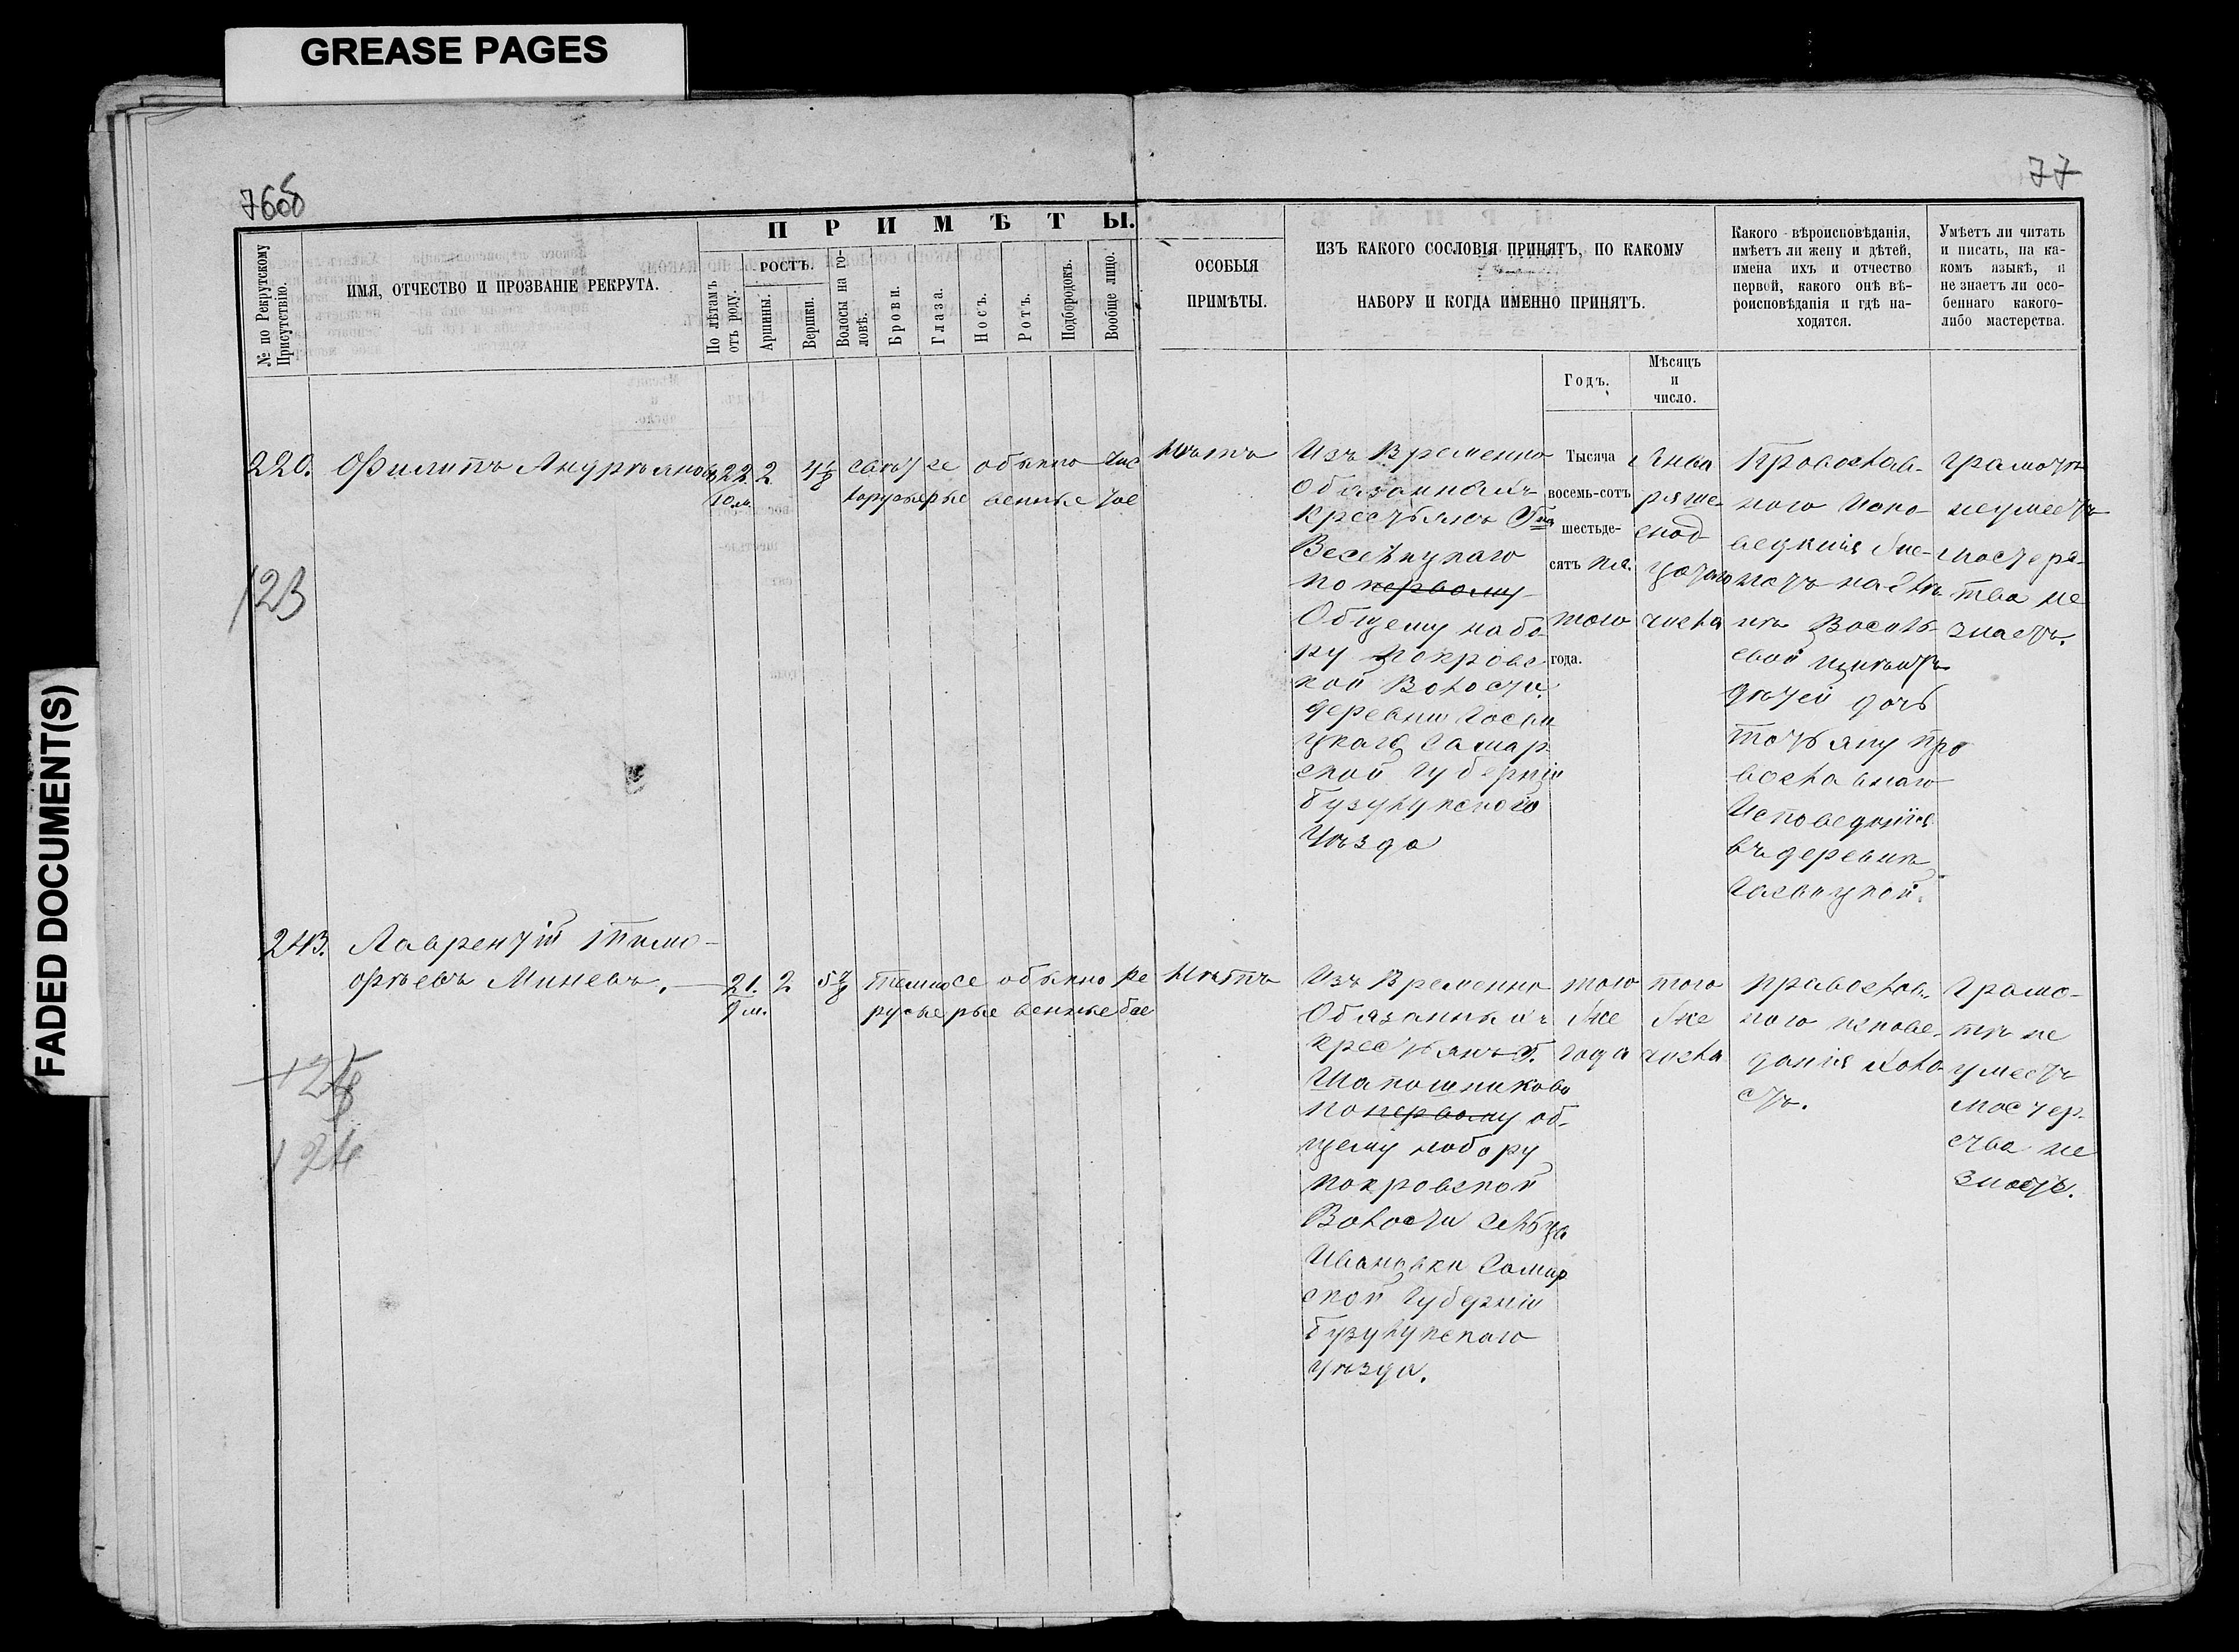 GREASE PAGES
FADED DOCUMENT(S)
76об
77
ПРИМѢТЫ.
№ по Рекрутскому
Присутствію.
ИМЯ, ОТЧЕСТВО И ПРОЗВАНІЕ РЕКРУТА.
По лѣтамъ
отъ роду.
РОСТЪ.
Аршины.
Вершки.
Волосы на го-
ловѣ.
Брови.
Глаза.
Носъ.
Ротъ.
Подбородокъ.
Вообще лицо.
ОСОБЫЯ
ПРИМѢТЫ.
ИЗЪ КАКОГО СОСЛОВІЯ ПРИНЯТЪ, ПО КАКОМУ
НАБОРУ И КОГДА ИМЕННО ПРИНЯТЪ.
Годъ.
Мѣсяцъ
и
число.
Какого вѣроисповѣданія,
имѣетъ ли жену и дѣтей,
имена ихъ и отчество
первой, какого онѣ вѣ-
роисповѣданія и гдѣ на-
ходятся.
Умѣетъ ли читать
и писать, на ка-
комъ языкѣ, и
не знаетъ ли осо-
беннаго какого-
либо мастерства.
220.
Филипъ Андреяновъ
22.
10 м.
2
4 1/8
свѣт
лорусые
се
рые
обыкно
венные
чис
тое
Нѣтъ
Изъ Временно
Обязанныхъ
Крестьянъ
по первому
Общему набо
ру Покровс
кой Волости
деревни
Самар
ской Губерніи
бузулукского
Уѣзда
Тысяча
восемь-сотъ
шестьде-
сятъ
того
года.
Янва
ря
числа
Провослав-
ного Испо-
ведкнія
Василь-
евой
дѣтей дочь
тотьяну про
вославнаго
Исповеднія
въ деревнѣ
Грамотѣ
неумеетъ
мостерс-
тва не
знаетъ.
123
243.
Лаврентій Тимо-
фѣевъ Миневъ.
21.
9 м.
2
5 7/8
темно
русые
се
рые
обыкно
венные
ре
бое
Нѣтъ
Изъ Временно
Обязанныхъ
крестьянъ Г.
Шапошникова
по первому об-
щему набору
покровской
Волости сельца
Ивановки Самар
ской Губерніи
бузулукскаго
уѣзда.
того
же
года
того
же
числа
православ-
ного испове-
данія холо
стъ.
Грамо-
тѣ не
умеетъ
мастер-
ства не
знаетъ.
124